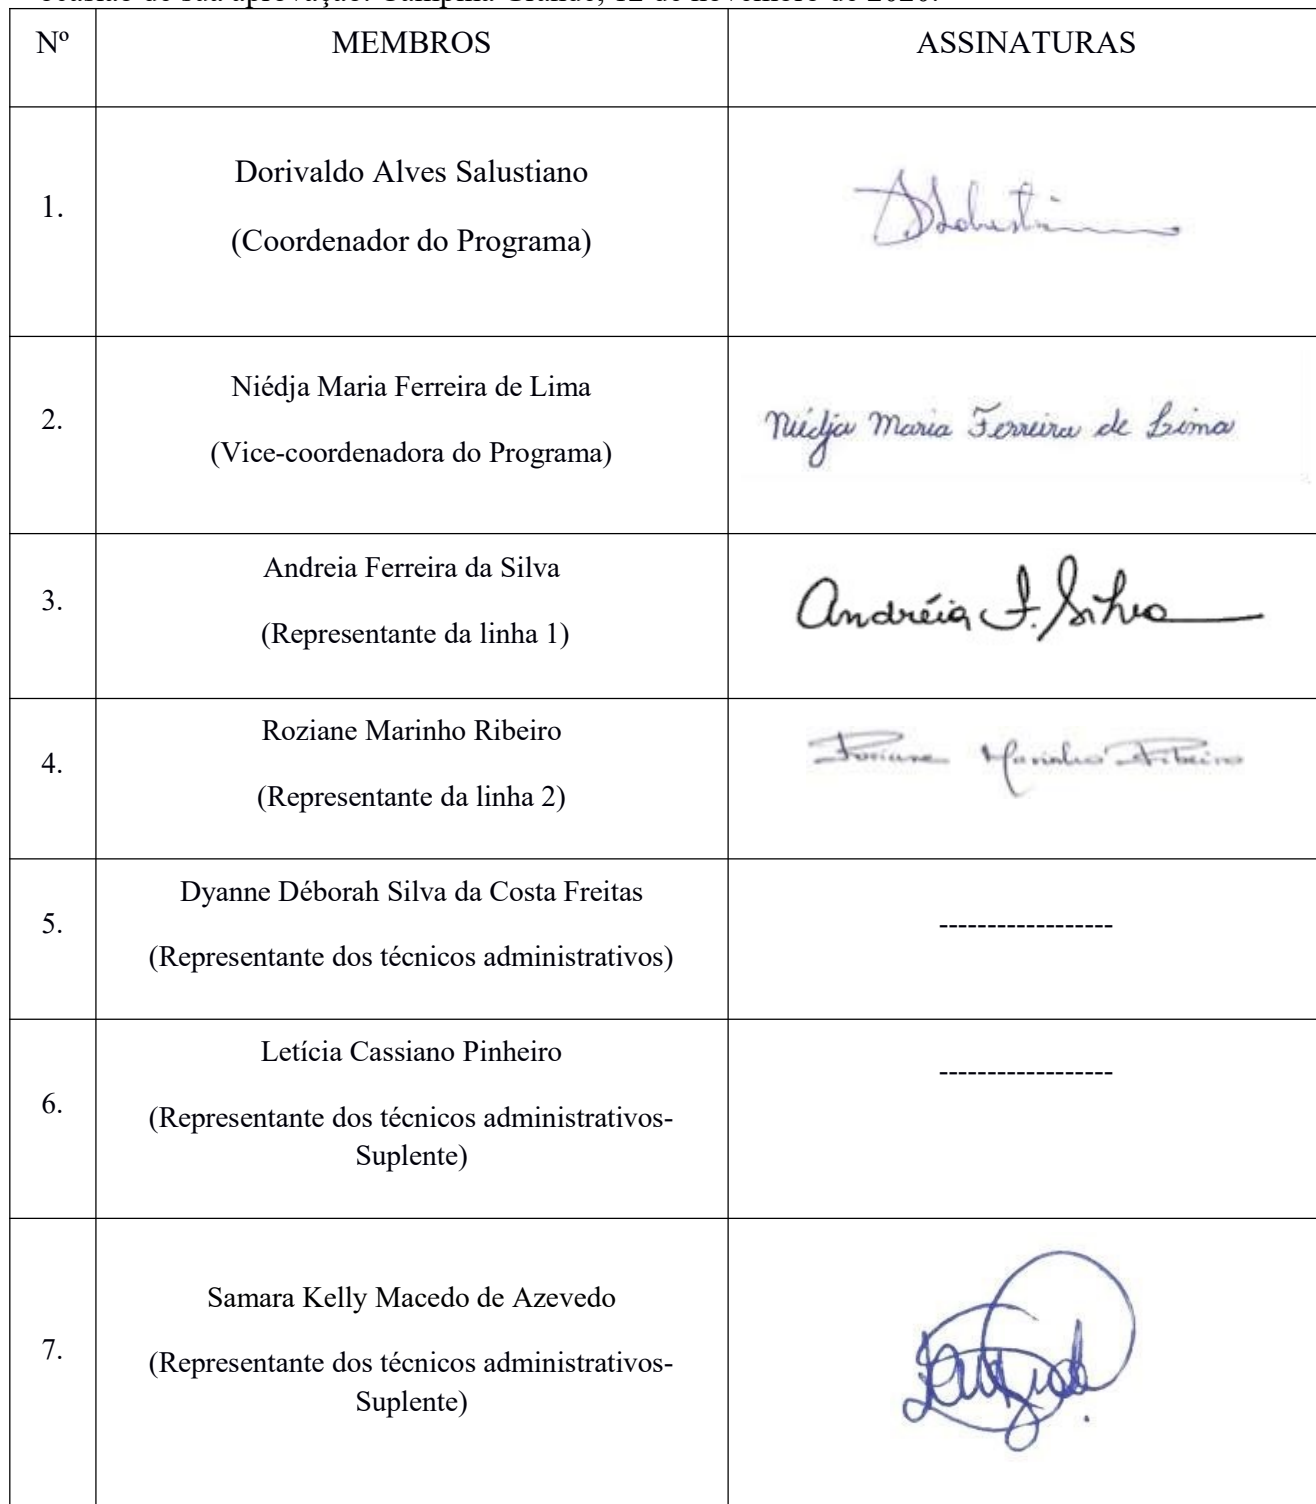 ocasião de sua aprovação. Campina Grande, 12 de novembro de 2020.
Nº MEMBROS ASSINATURAS
1.
Dorivaldo Alves Salustiano
(Coordenador do Programa)
2.
Niédja Maria Ferreira de Lima
(Vice-coordenadora do Programa)
Niédja Maria Ferreira de Lima
3.
Andreia Ferreira da Silva
(Representante da linha 1)
Andréia F. Silva
4.
Roziane Marinho Ribeiro
(Representante da linha 2)
Roziane Marinho Ribeiro
5.
Dyanne Déborah Silva da Costa Freitas
(Representante dos técnicos administrativos)
------------------
6.
Letícia Cassiano Pinheiro
(Representante dos técnicos administrativos-
Suplente)
------------------
7.
Samara Kelly Macedo de Azevedo
(Representante dos técnicos administrativos-
Suplente)